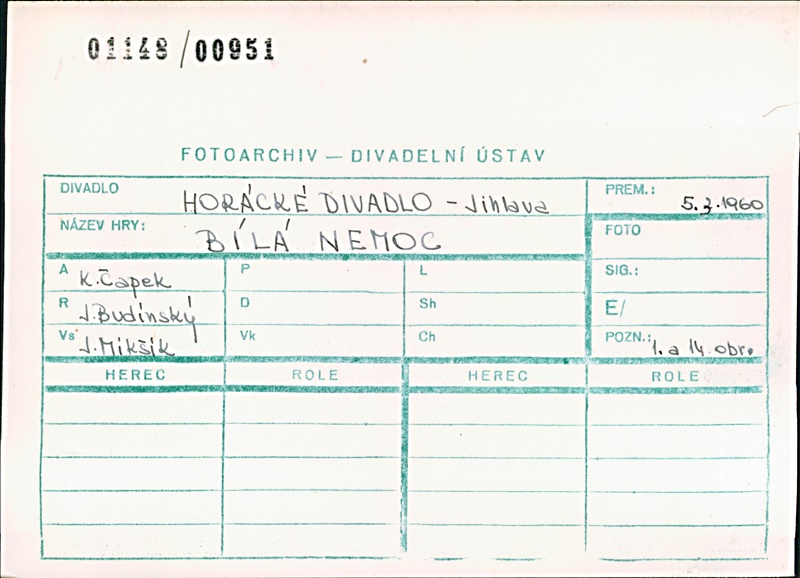 01148/00951
FOTOARCHIV — DIVADELNÍ ÚSTAV
DIVADLO HORÁCKÉ DIVADLO - Jihlava
PREM.: 5.3.1960
NÁZEV HRY: BÍLÁ NEMOC
FOTO
A K.Čapek P L SIG.:
R J.Budínský D Sh E/
Vs J.Mikšík Vk Ch POZN.: 1. a 14. obr.
HEREC ROLE HEREC ROLE